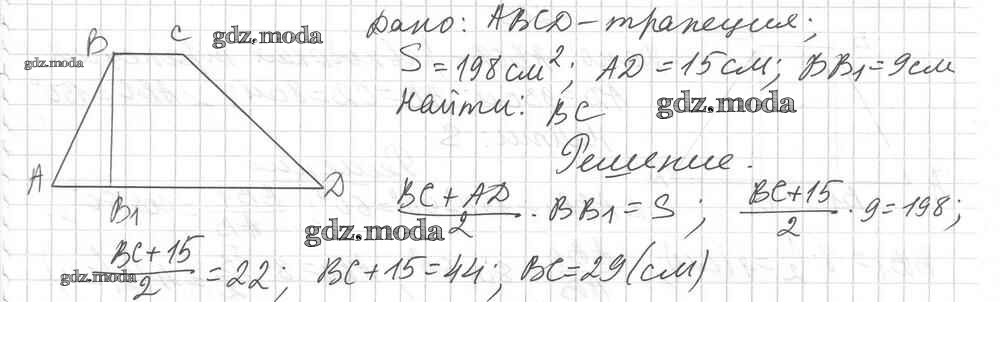 B C gdz.moda Дано: ABCD – трапеция;
gdz.moda S = 198 см²; AD = 15 см; BB₁ = 9 см
Найти: BC gdz.moda
Решение.
A B₁ D
(BC + AD)/2 · BB₁ = S; (BC+15)/2 · 9 = 198;
gdz.moda
(BC + 15)/2 = 22; BC + 15 = 44; BC = 29 (см)
gdz.moda